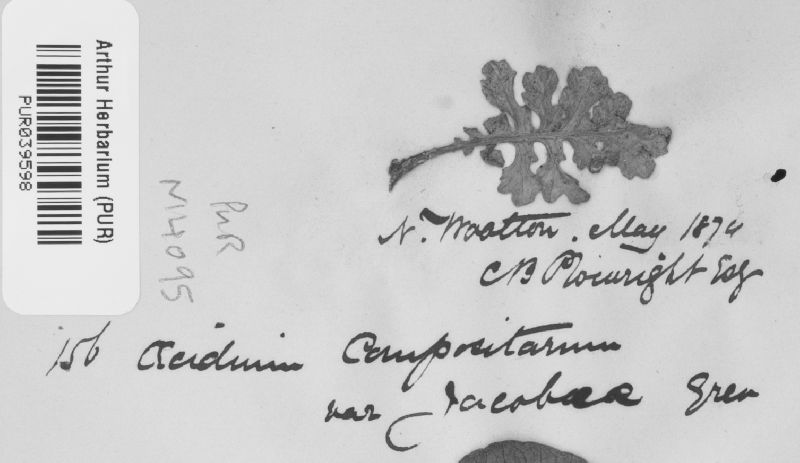 Arthur Herbarium (PUR)
PUR039598
PUR
N14095
N. Wootton. May 1874
CB Plowright Esq
156 Æcidium Compositarum
var Jacobææ Grev